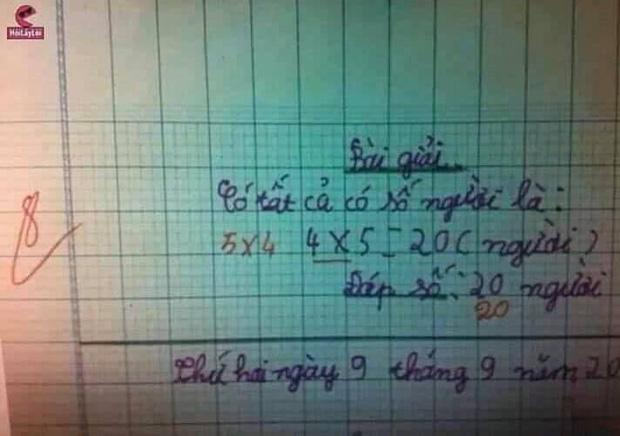 HóiLấyLợi
Bài giải
Có tất cả có số người là:
8
5x4 4 x 5 = 20 (người)
Đáp số: 20 người
20
Thứ hai ngày 9 tháng 9 năm 20